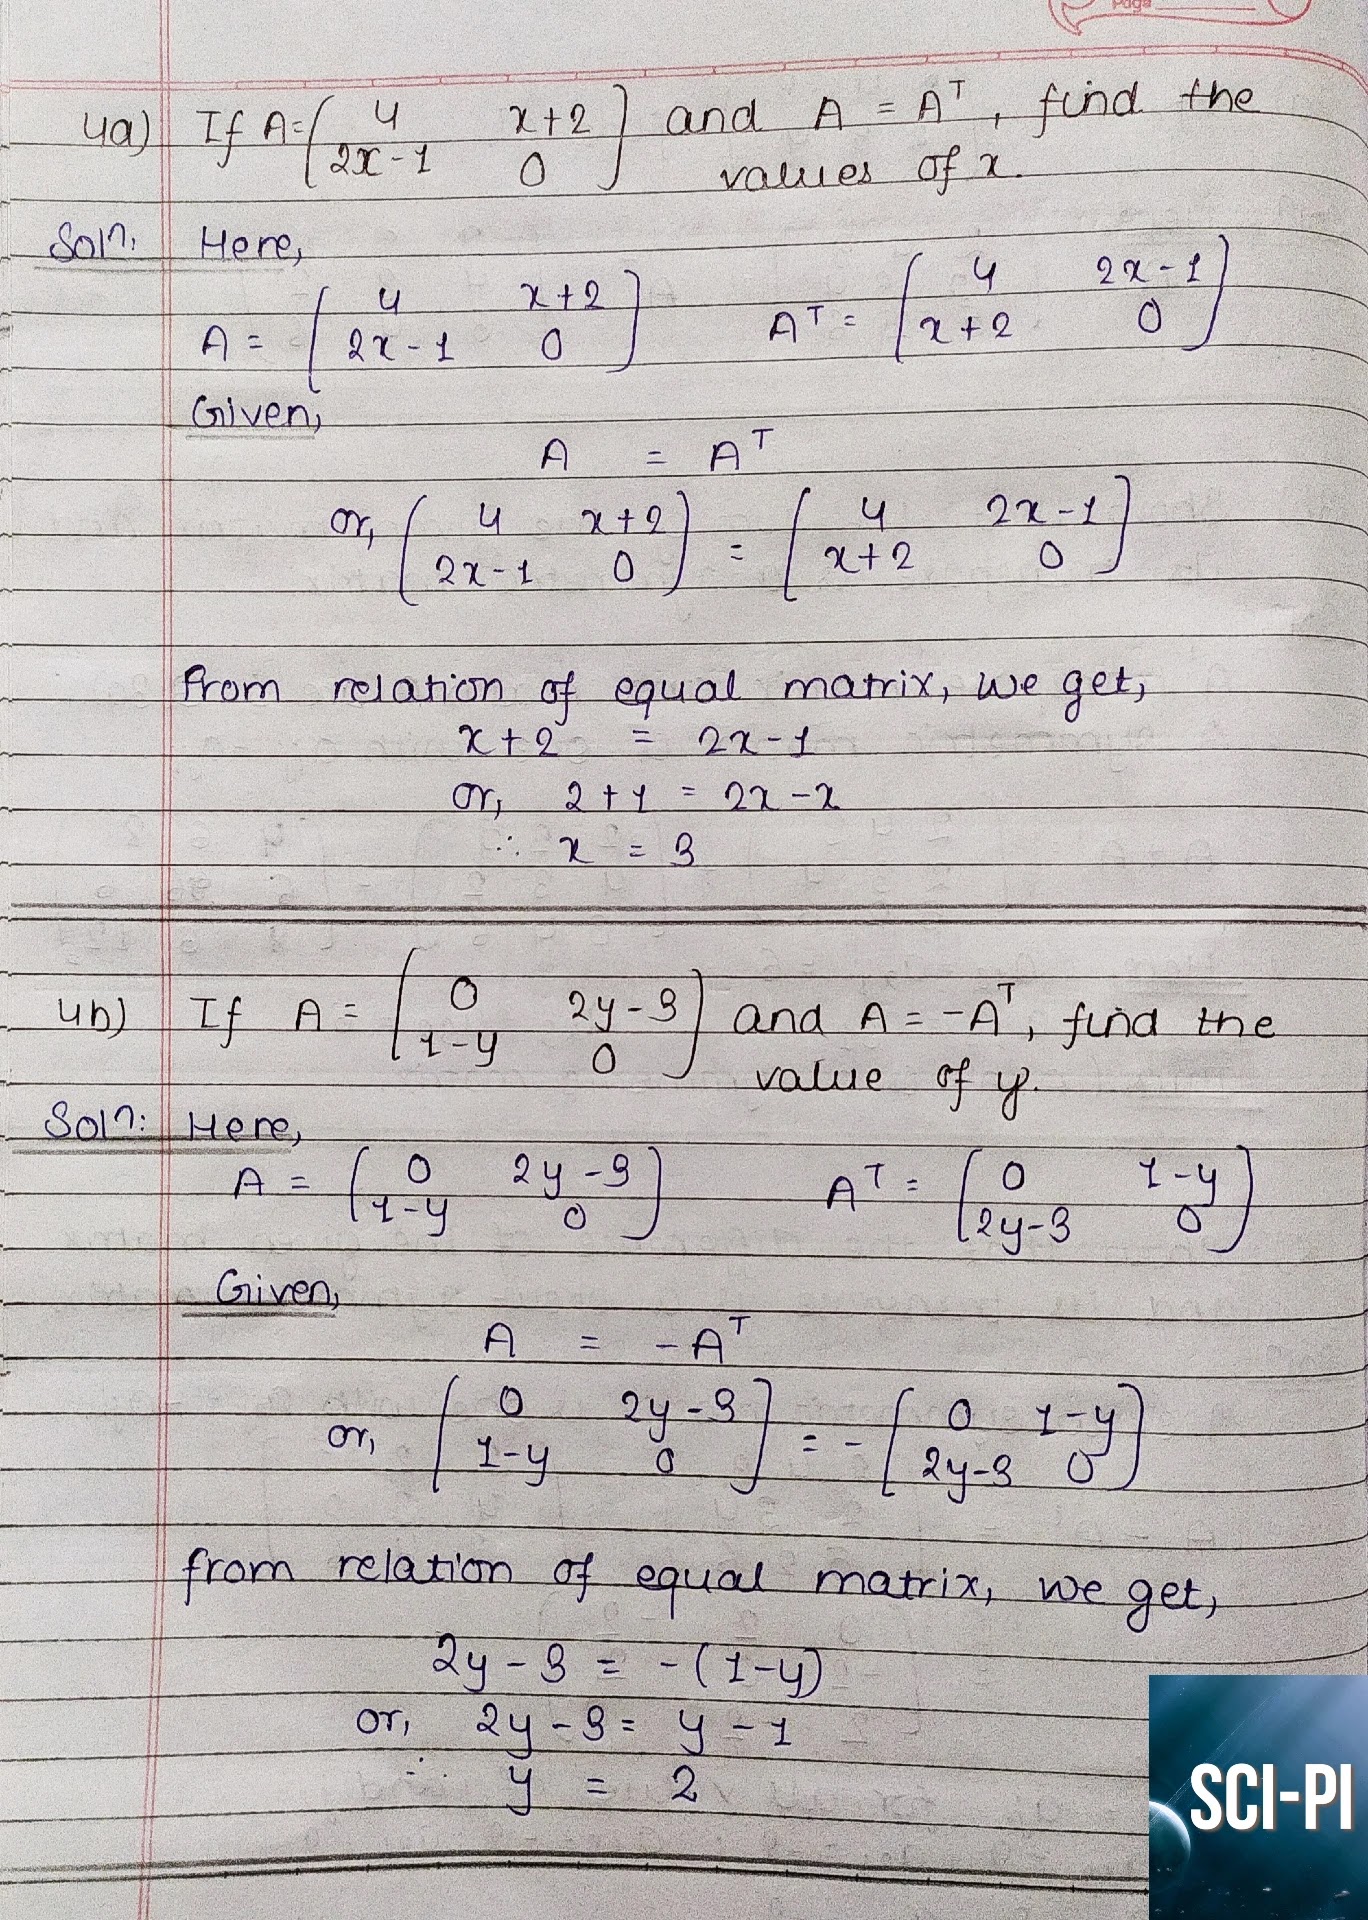 Page
4a) If A = [ 4 x+2 ] and A = Aᵀ, find the
[ 2x-1 0 ] values of x.
Soln: Here,
A = [ 4 x+2 ] Aᵀ = [ 4 2x-1 ]
[ 2x-1 0 ] [ x+2 0 ]
Given,
A = Aᵀ
or, [ 4 x+2 ] = [ 4 2x-1 ]
[ 2x-1 0 ] [ x+2 0 ]
From relation of equal matrix, we get,
x+2 = 2x-1
or, 2+1 = 2x-x
∴ x = 3
4b) If A = [ 0 2y-3 ] and A = -Aᵀ, find the
[ 1-y 0 ] value of y.
Soln: Here,
A = [ 0 2y-3 ] Aᵀ = [ 0 1-y ]
[ 1-y 0 ] [ 2y-3 0 ]
Given,
A = -Aᵀ
or, [ 0 2y-3 ] = - [ 0 1-y ]
[ 1-y 0 ] [ 2y-3 0 ]
from relation of equal matrix, we get,
2y-3 = -(1-y)
or, 2y-3 = y-1
∴ y = 2
SCI-PI